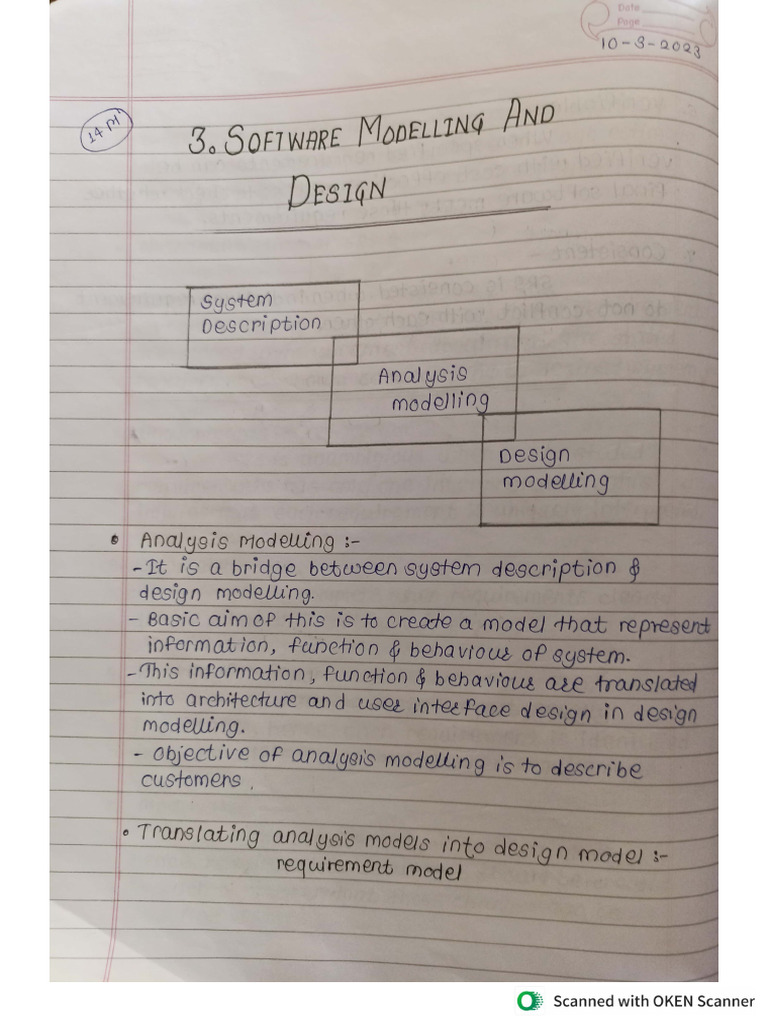 Date
Page
10-3-2023
14 M
3. SOFTWARE MODELLING AND
DESIGN
System
Description
Analysis
modelling
Design
modelling
• Analysis Modelling :-
- It is a bridge between system description &
design modelling.
- Basic aim of this is to create a model that represent
information, function & behaviour of system.
- This information, function & behaviour are translated
into architecture and user interface design in design
modelling.
- Objective of analysis modelling is to describe
customers.
• Translating analysis models into design model :-
requirement model
Scanned with OKEN Scanner